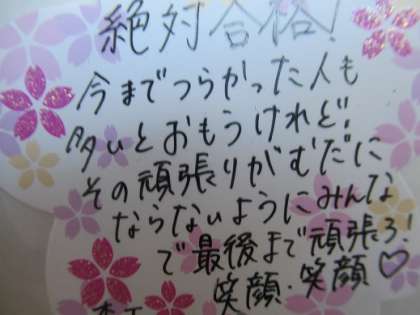 絶対合格!
今までつらかった人も
多いとおもうけれど!
その頑張りがむだに
ならないようにみんな
で最後まで頑張ろ!
笑顔・笑顔♡